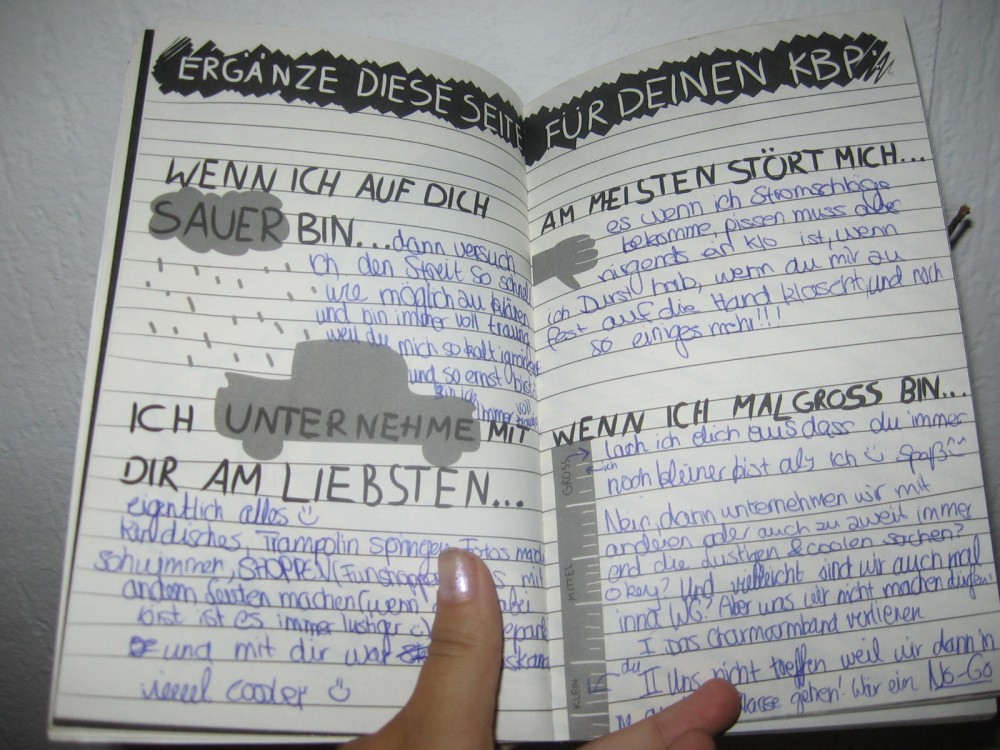 ERGÄNZE DIESE SEITE
WENN ICH AUF DICH
SAUER BIN... dann versuch
ich den Streit so schnell
wie möglich zu klären
und bin immer voll traurig
weil du mich so kalt ignorierst
und so ernst bist
bin ich
immer voll
ICH UNTERNEHME MIT
DIR AM LIEBSTEN...
eigentlich alles ☺
Kindisches, Trampolin springen, Fotos mach
schwimmen, SHOPPEN (Funshoppe mit
andern Leuten machen (wenn dabei
bist ist es immer lustiger
und mit dir war
vieeel cooler ☺
FÜR DEINEN KBP
AM MEISTEN STÖRT MICH...
es wenn ich Stromschläge
bekomme, pissen muss aber
nirgends ein klo ist, wenn
ich Durst hab, wenn du mir zu
fest auf die Hand klascht, und noch
so einiges mehr!!!
WENN ICH MAL GROSS BIN...
lach ich dich aus dass du immer
noch kleiner bist als ich ☺ Spaß^^
Nein, dann unternehmen wir mit
anderen oder auch zu zweit immer
end die lustigen & coolen sachen?
okey? Und vielleicht sind wir auch mal
inna WG? Aber was wir nicht machen dürfen!
I Das charmarmband verlieren
II Uns nicht treffen weil wir dann in
klasse gehen! Wär ein No-Go
GROSS
ich
MITTEL
du
KLEIN